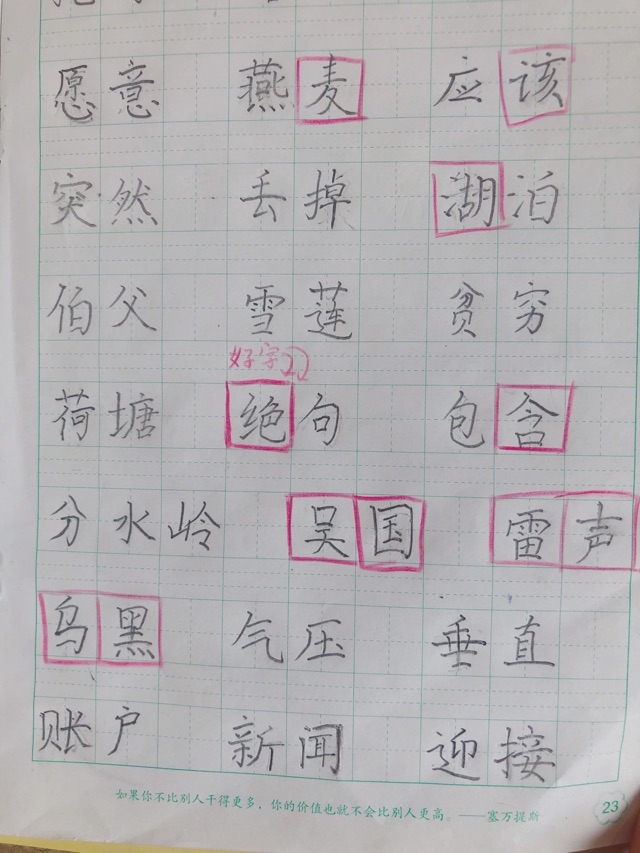 愿意 燕麦 应该
突然 丢掉 湖泊
伯父 雪莲 贫穷
好字
荷塘 绝句 包含
分水岭 吴国 雷声
乌黑 气压 垂直
账户 新闻 迎接
如果你不比别人干得更多,你的价值也就不会比别人更高。——塞万提斯
23